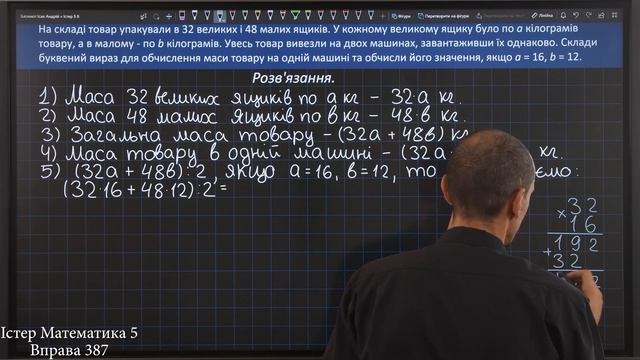 Блокнот Ісак Андрій » Істер 5 ІІ
Фігури
Перетворити на фігури
Перетворити на текст
Лінійка
На складі товар упакували в 32 великих і 48 малих ящиків. У кожному великому ящику було по a кілограмів
товару, а в малому - по b кілограмів. Увесь товар вивезли на двох машинах, завантаживши їх однаково. Склади
буквений вираз для обчислення маси товару на одній машині та обчисли його значення, якщо a = 16, b = 12.
Розв'язання.
1) Маса 32 великих ящиків по a кг – 32·a кг.
2) Маса 48 малих ящиків по b кг – 48·b кг.
3) Загальна маса товару – (32a + 48b) кг
4) Маса товару в одній машині – (32a кг.
5) (32a + 48b):2, якщо a=16, b=12, то ємо:
(32·16 + 48·12):2 =
× 32
16
192
+ 32
2
Істер Математика 5
Вправа 387